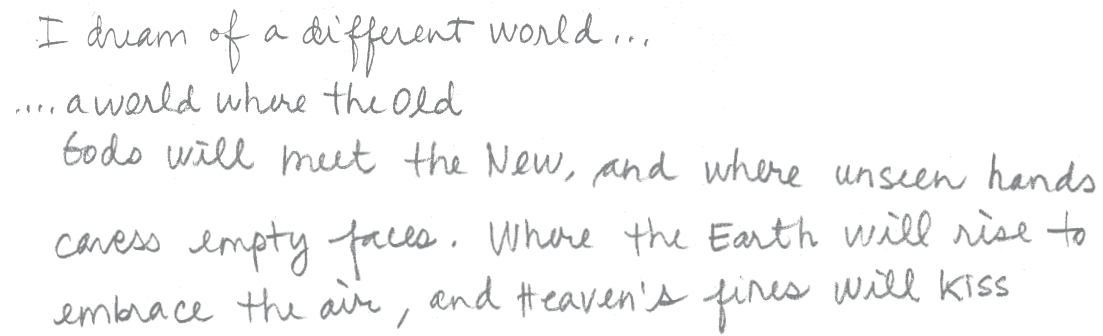 I dream of a different world...
....a world where the Old
Gods will meet the New, and where unseen hands
caress empty faces. Where the Earth will rise to
embrace the air, and Heaven's fires will kiss